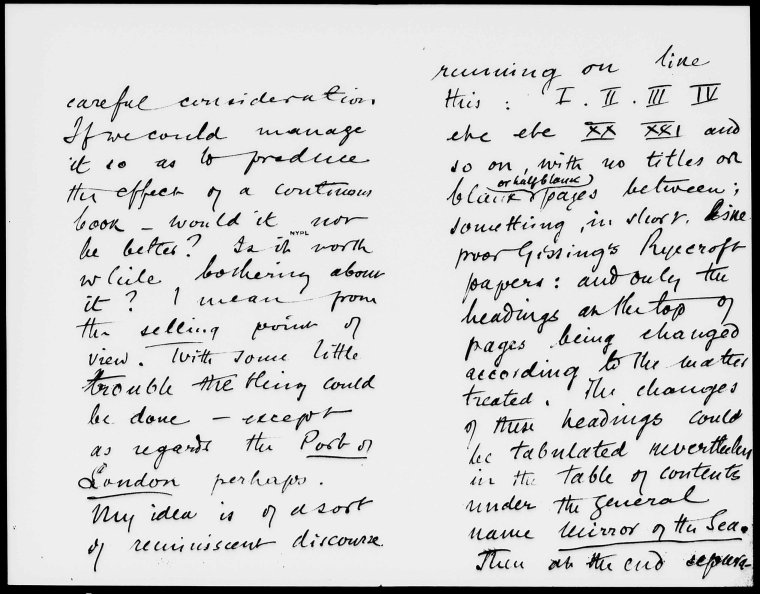 careful consideration.
If we could manage
it so as to produce
the effect of a continous
book – would it not
NYPL
be better? Is it worth
while bothering about
it? I mean from
the selling point of
view. With some little
trouble the thing could
be done – except
as regards the Port of
London perhaps.
My idea is of a sort
of reminiscent discourse
running on like
this: I. II. III IV
etc etc XX XXI and
so on, with no titles or
or half blank
blank pages between;
something, in short, like
poor Gissing's Ryecroft
papers: and only the
headings at the top of
pages being changed
according to the matter
treated. The changes
of these headings could
be tabulated nevertheless
in the table of contents
under the general
name Mirror of the Sea.
Then at the end separa-